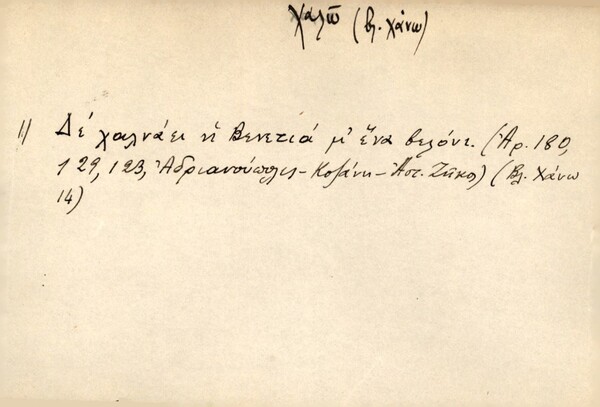 χαλῶ (βλ. χάνω)
1) Δέ χαλνάει ἡ Βενετιά μ' ἕνα βελόνι. (Ἀρ. 180,
129, 123, Ἀδριανούπολις - Κοζάνη - Ἀστ. Ζῆκος) (Βλ. χάνω
14)